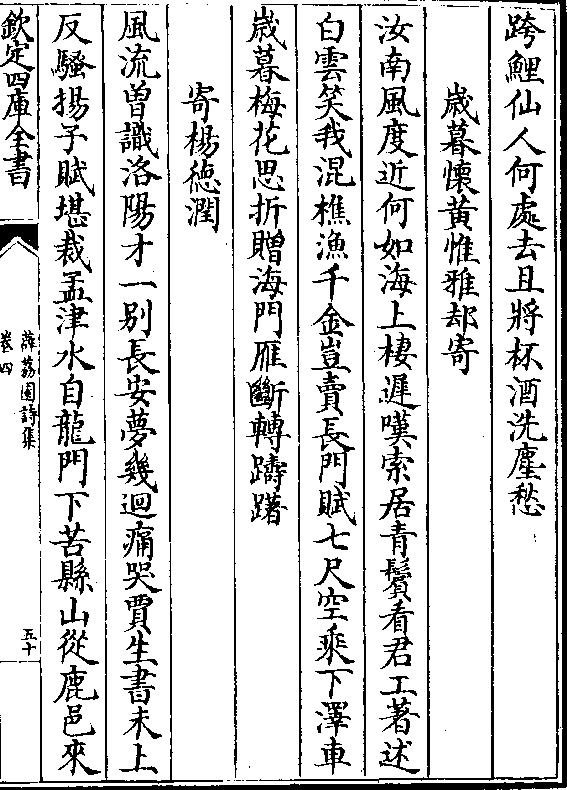 跨鯉仙人何處去且將杯酒洗塵愁
歲暮懷黃惟雅却寄
汝南風度近何如海上棲遲嘆索居青鬢看君工著述
白雲笑我混樵漁千金豈賣長門賦七尺空乘下澤車
歲暮梅花思折贈海門雁斷轉躊躇
寄楊德潤
風流曽識洛陽才一别長安夢幾迴痛哭賈生書未上
反騷揚子賦堪裁孟津水自龍門下苦縣山從鹿邑來
欽定四庫全書
薜荔園詩集
卷四
五十